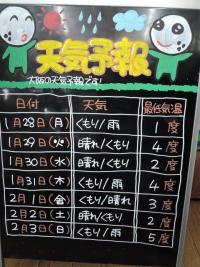 天気予報
大阪の天気予報です!
日付 天気 最低気温
1月28日(月) くもり/雨 1度
1月29日(火) 晴れ/くもり 4度
1月30日(水) 晴れ/くもり 2度
1月31日(木) くもり/雨 4度
2月1日(金) くもり/晴れ 3度
2月2日(土) 晴れ/くもり 2度
2月3日(日) くもり/雨 5度